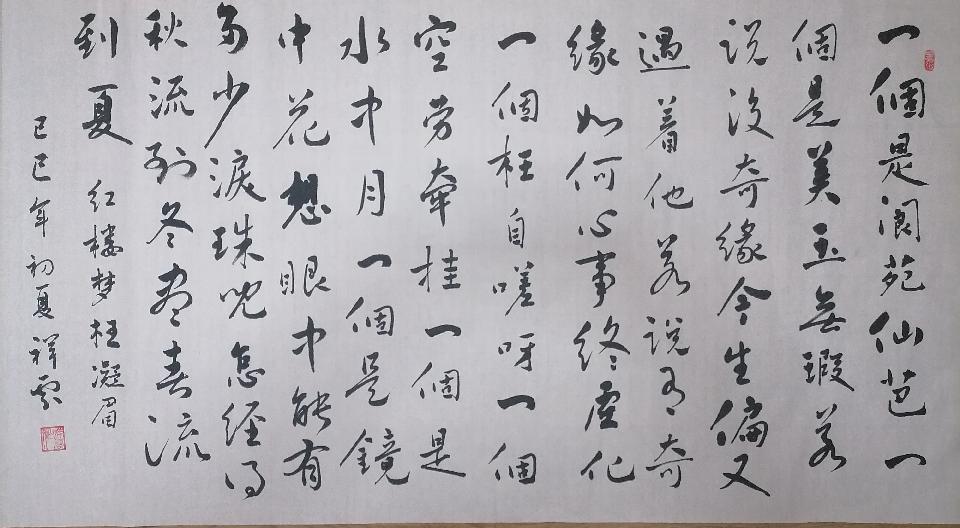 一個是阆苑仙芭一
個是美玉無瑕若
说没奇缘今生偏又
遇着他若说有奇
缘如何心事终虚化
一個枉自嗟呀一個
空劳牵挂一個是
水中月一個是鏡
中花想眼中能有
多少淚珠兒怎经得
秋流到冬尽春流
到夏 红楼梦枉凝眉
己巳年初夏祥雲